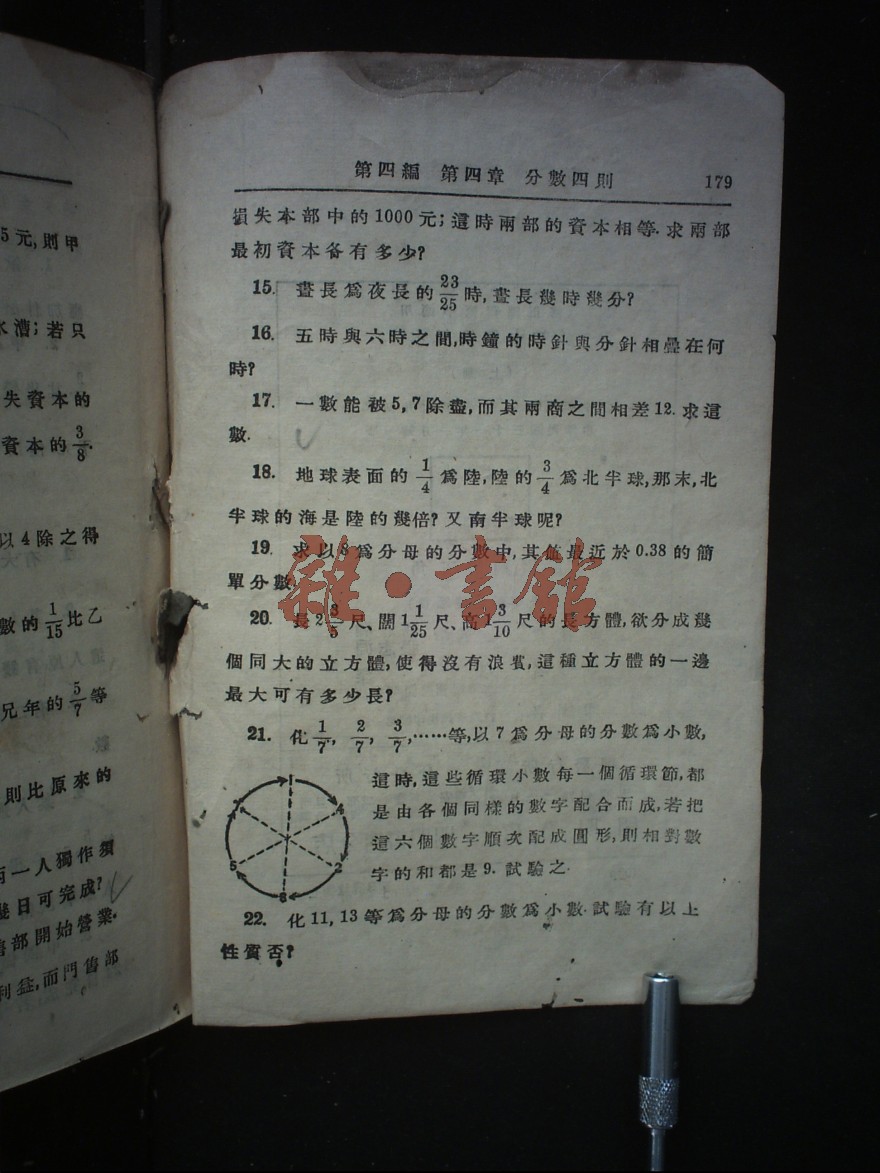 5元,則甲
水漕;若只
失資本的
資本的3/8.
以4除之得
數的1/15比乙
兄年的5/7等
則比原來的
一人獨作須
幾日可完成?
售部開始營業.
利益,而門售部
第四編 第四章 分數四則 179
損失本部中的1000元;這時兩部的資本相等.求兩部
最初資本各有多少?
15. 晝長爲夜長的23/25時,晝長幾時幾分?
16. 五時與六時之間,時鐘的時針與分針相疊在何
時?
17. 一數能被5,7除盡,而其兩商之間相差12.求這
數.
18. 地球表面的1/4爲陸,陸的3/4爲北半球,那末,北
半球的海是陸的幾倍?又南半球呢?
19. 求以8爲分母的分數中,其值最近於0.38的簡
單分數.
20. 長2 3/5尺、闊1 1/25尺、高1 3/10尺的長方體,欲分成幾
個同大的立方體,使得沒有浪費,這種立方體的一邊
最大可有多少長?
21. 化1/7, 2/7, 3/7,……等,以7爲分母的分數爲小數,
這時,這些循環小數每一個循環節,都
是由各個同樣的數字配合而成,若把
這六個數字順次配成圓形,則相對數
字的和都是9.試驗之.
1
4
2
8
5
7
22. 化11,13等爲分母的分數爲小數.試驗有以上
性質否?
雜·書館